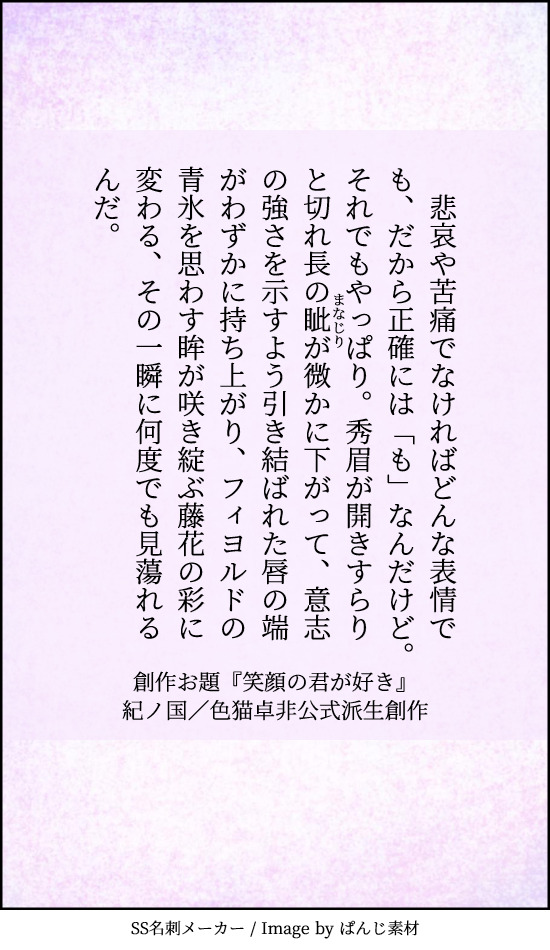 悲哀や苦痛でなければどんな表情で
も、だから正確には「も」なんだけど。
それでもやっぱり。秀眉が開きすらり
と切れ長の眦が微かに下がって、意志
まなじり
の強さを示すよう引き結ばれた唇の端
がわずかに持ち上がり、フィヨルドの
青氷を思わす眸が咲き綻ぶ藤花の彩に
変わる、その一瞬に何度でも見蕩れる
んだ。
創作お題『笑顔の君が好き』
紀ノ国／色猫卓非公式派生創作
SS名刺メーカー / Image by ぱんじ素材